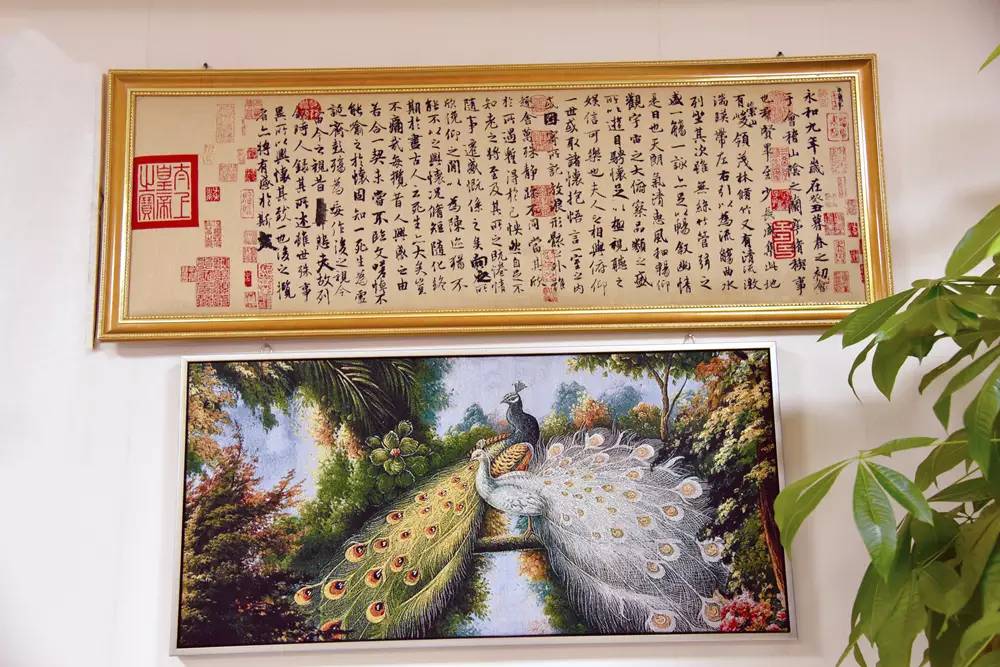 永和九年歲在癸丑暮春之初會
于會稽山陰之蘭亭脩禊事
也群賢畢至少長咸集此地
有崇山峻領茂林脩竹又有清流激
湍暎帶左右引以為流觴曲水
列坐其次雖無絲竹管弦之
盛一觴一詠亦足以暢敘幽情
是日也天朗氣清惠風和暢仰
觀宇宙之大俯察品類之盛
所以遊目騁懷足以極視聽之
娛信可樂也夫人之相與俯仰
一世或取諸懷抱悟言一室之內
或因寄所託放浪形骸之外雖
趣舍萬殊靜躁不同當其欣
於所遇暫得於己怏然自足不
知老之將至及其所之既惓情
隨事遷感慨係之矣向之所
欣俛仰之閒以為陳迹猶不
能不以之興懷況脩短隨化終
期於盡古人云死生亦大矣豈
不痛哉每攬昔人興感之由
若合一契未嘗不臨文嗟悼不
能喻之於懷固知一死生為虛
誕齊彭殤為妄作後之視今
亦由今之視昔悲夫故列
敘時人錄其所述雖世殊事
異所以興懷其致一也後之攬
者亦將有感於斯文
太上皇帝之寶